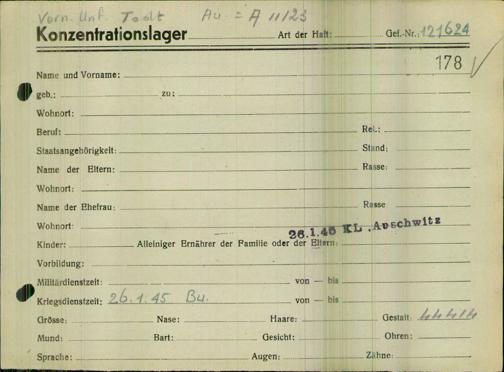 Vorn. Unf. Todt Au = A 11/23
Konzentrationslager Art der Haft: Gef.-Nr.: 121624
178
Name und Vorname:
geb.: zu:
Wohnort:
Beruf: Rel.:
Staatsangehörigkeit: Stand:
Name der Eltern: Rasse:
Wohnort:
Name der Ehefrau: Rasse
Wohnort: 26.1.45 KL. Auschwitz
Kinder: Alleiniger Ernährer der Familie oder der Eltern:
Vorbildung:
Militärdienstzeit: von — bis
Kriegsdienstzeit: 26.1.45 Bu. von — bis
Grösse: Nase: Haare: Gestalt:
Mund: Bart: Gesicht: Ohren:
Sprache: Augen: Zähne: